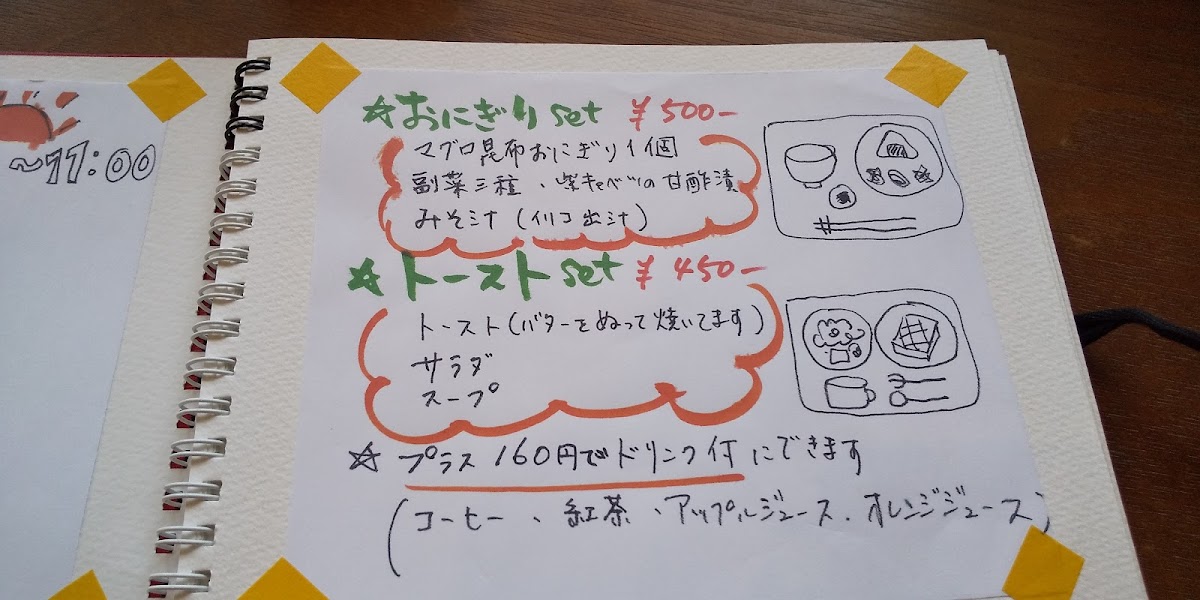 ~11:00
☆おにぎりset ¥500-
マグロ昆布おにぎり1個
副菜三種、柴キャベツの甘酢漬
みそ汁(イリコ出汁)
☆トーストset ¥450-
トースト(バターをぬって焼いてます)
サラダ
スープ
☆プラス160円でドリンク付にできます
(コーヒー、紅茶、アップルジュース、オレンジジュース)